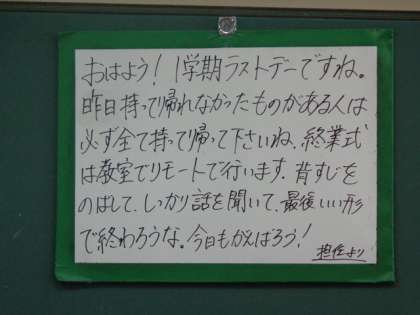 おはよう！1学期ラストデーですね。
昨日持って帰れなかったものがある人は
必ず全て持って帰って下さいね。終業式
は教室でリモートで行います。背すじを
のばして、しっかり話を聞いて、最後いい形
で終わろうな。今日もがんばろう！
担任より